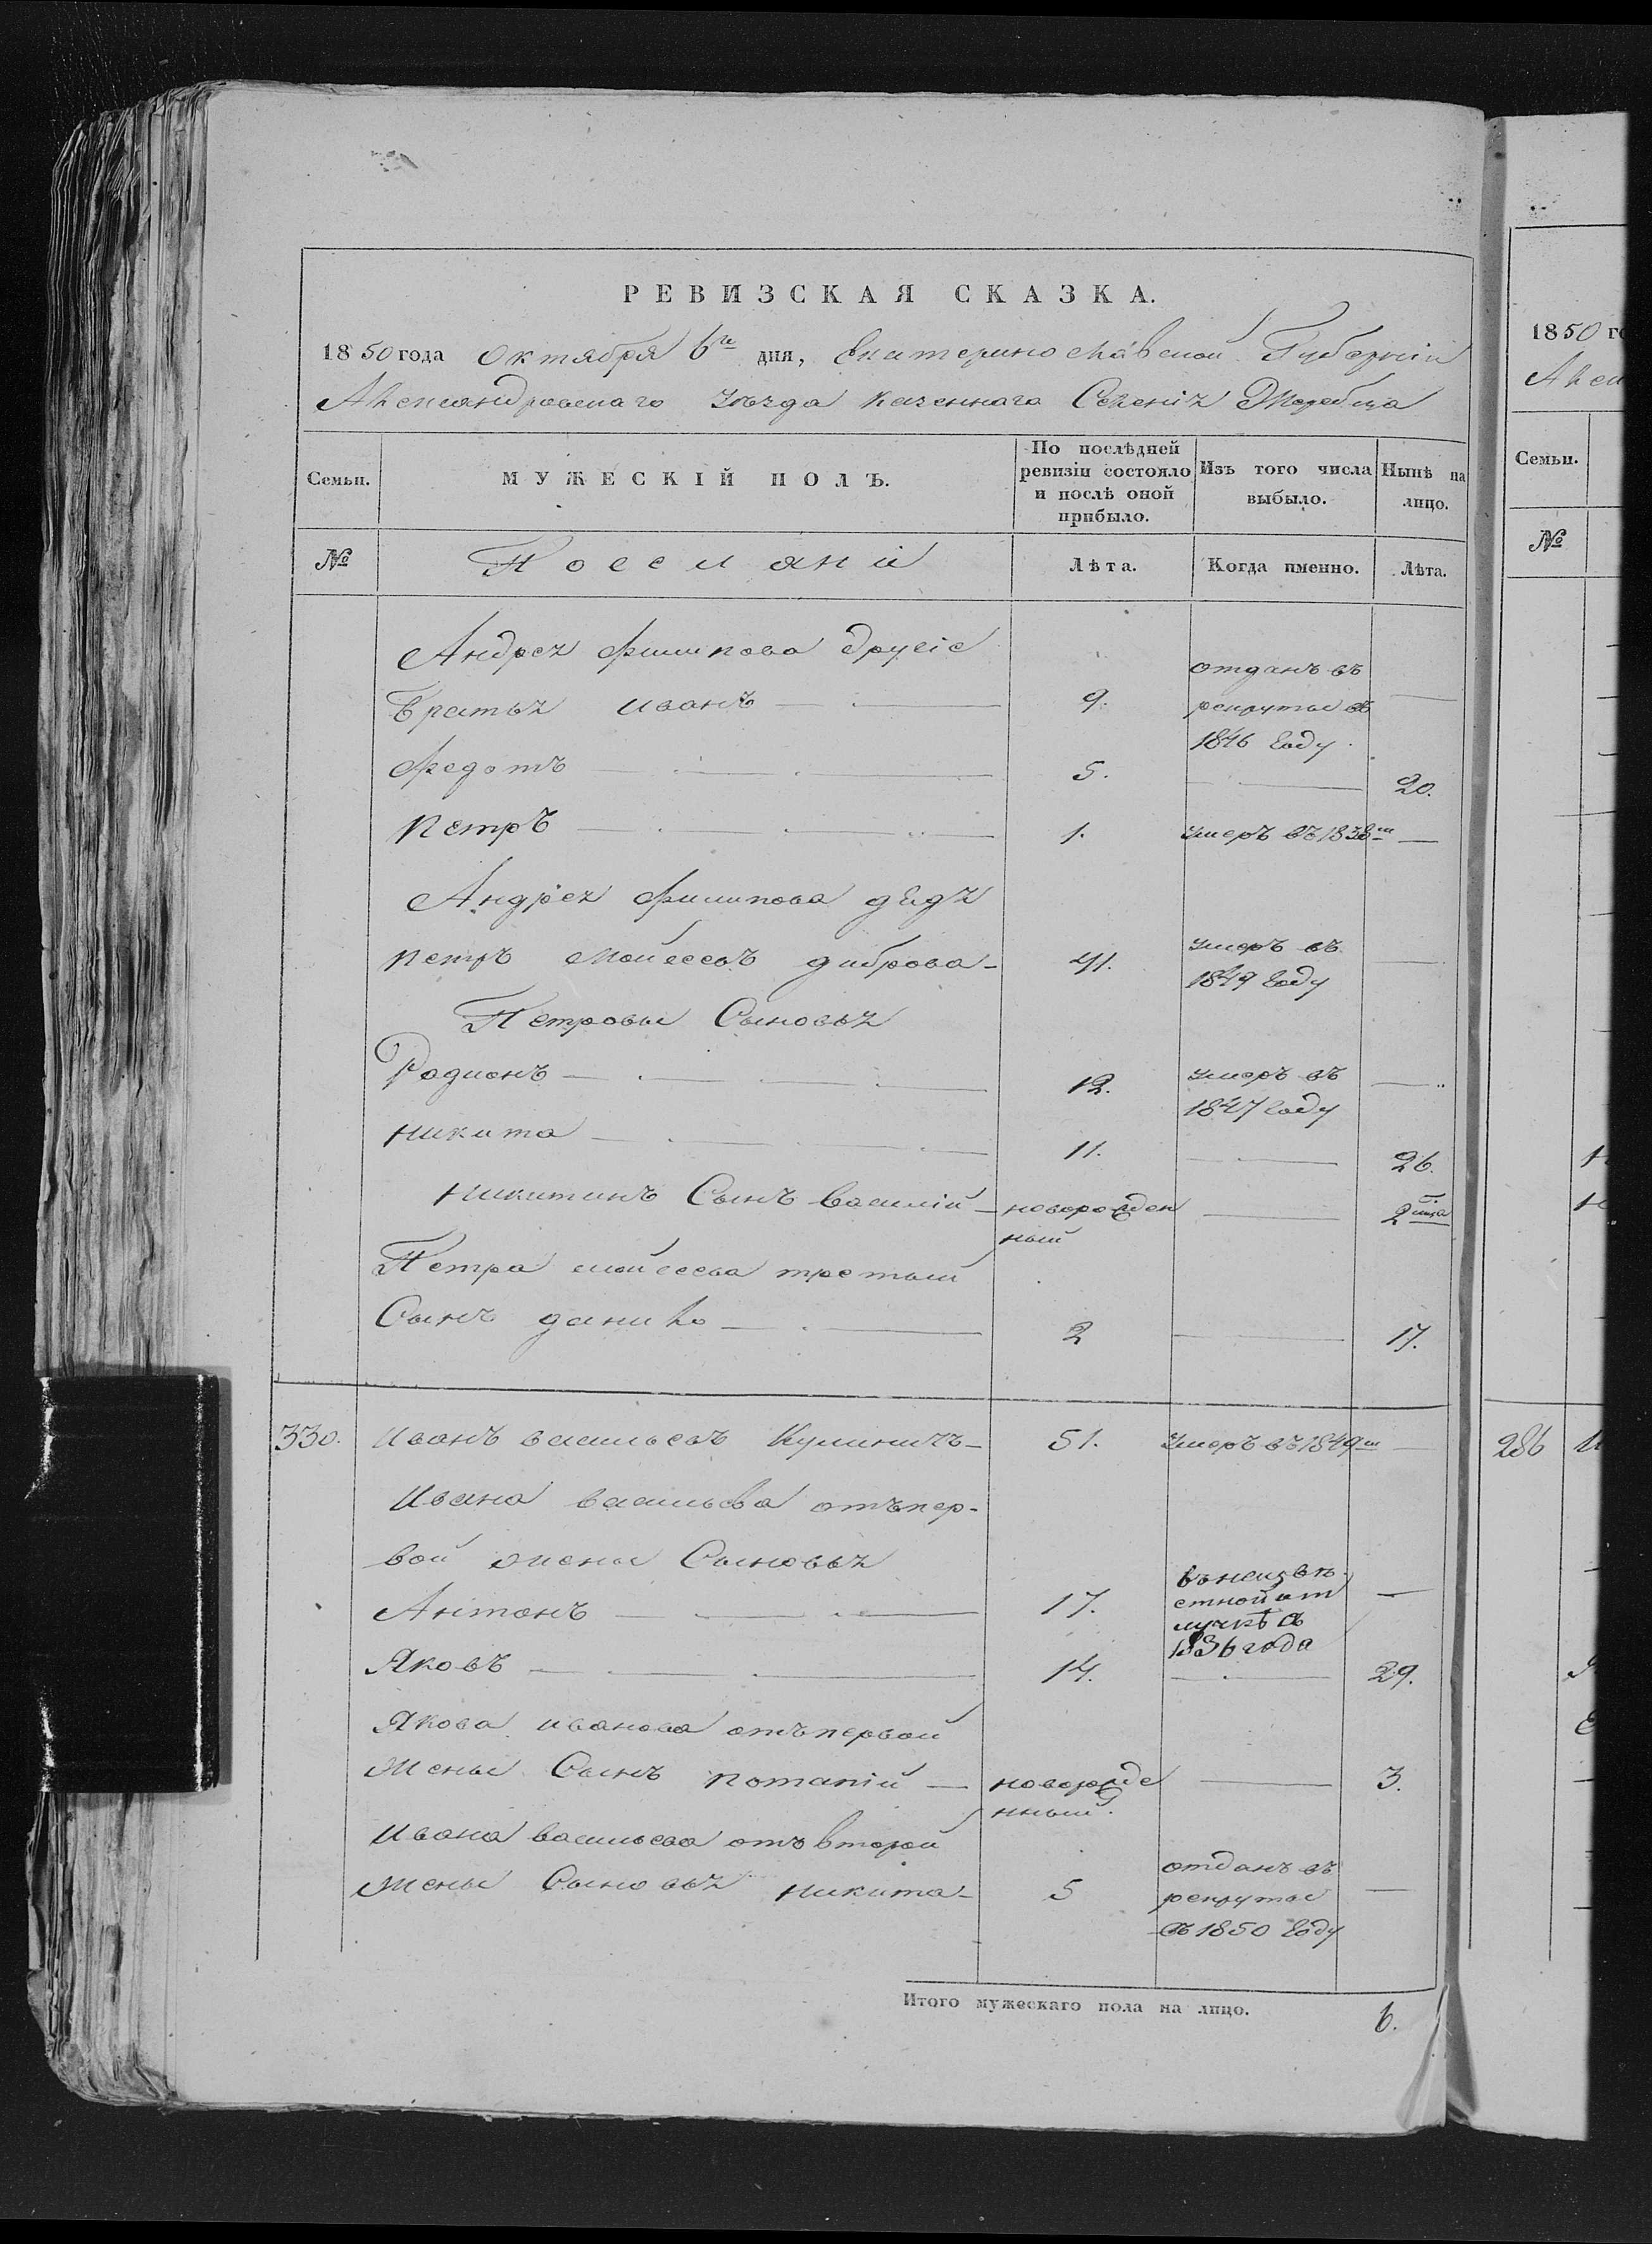 РЕВИЗСКАЯ СКАЗКА.
1850 года Октября 6го дня, Екатеринославской Губерніи
Александровскаго Уѣзда казеннаго Селенія Жеребца
Семьи. МУЖЕСКІЙ ПОЛЪ. По послѣдней ревизіи состояло и послѣ оной прибыло. Изъ того числа выбыло. Нынѣ на лицо.
№ Поселяни Лѣта. Когда именно. Лѣта.
Андрея Филипова другіе
Братья иванъ 9. отданъ въ рекруты въ 1846 году.
Федотъ 5. 20.
Петръ 1. умеръ въ 1838м
Андрея Филипова дядя
Петръ Мойсеевъ диброва 41. умеръ въ 1849 году
Петровы Сыновья
Родионъ 12. умеръ въ 1847 году
Никита 11. 26.
Никитинъ Сынъ василій новорожденный 2 мца
Петра мойсеева третьий
Сынъ данило 2 17.
330. Иванъ васильевъ Кулиничъ 51. умеръ въ 1849м
Ивана васильева отъ пер-
вой жены Сыновья
Антонъ 17. въ неизвѣстной отлучкѣ съ 1836 года
Яковъ 14. 29.
Якова иванова отъ первой
жены Сынъ потапій новорожденный. 3.
Ивана васильева отъ второй
жены Сыновья никита 5 отданъ въ рекруты въ 1850 году
Итого мужескаго пола на лицо. 6.
1850
Семьи.
№
286